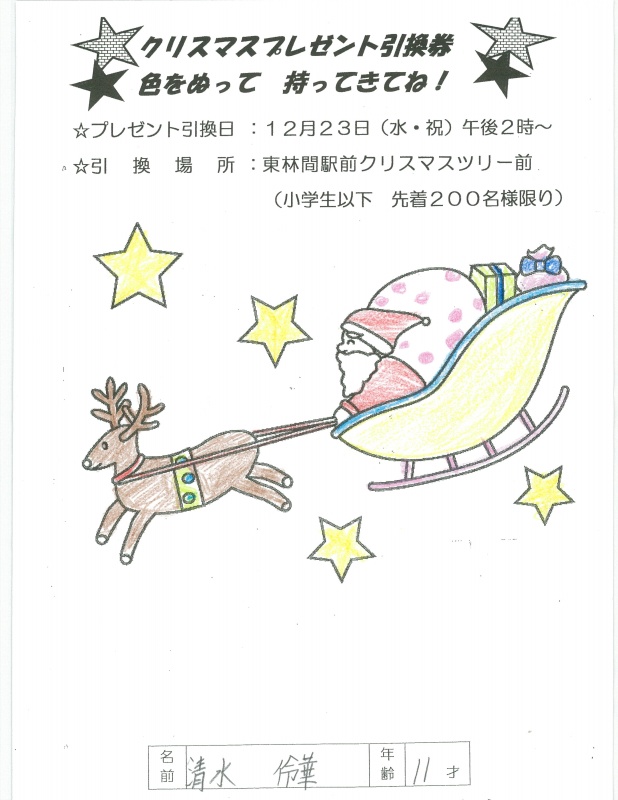 クリスマスプレゼント引換券
色をぬって　持ってきてね！
☆プレゼント引換日　：１２月２３日（水・祝）午後２時～
☆引　換　場　所　：東林間駅前クリスマスツリー前
（小学生以下　先着２００名様限り）
名前　清水　伶華　年齢　11　才